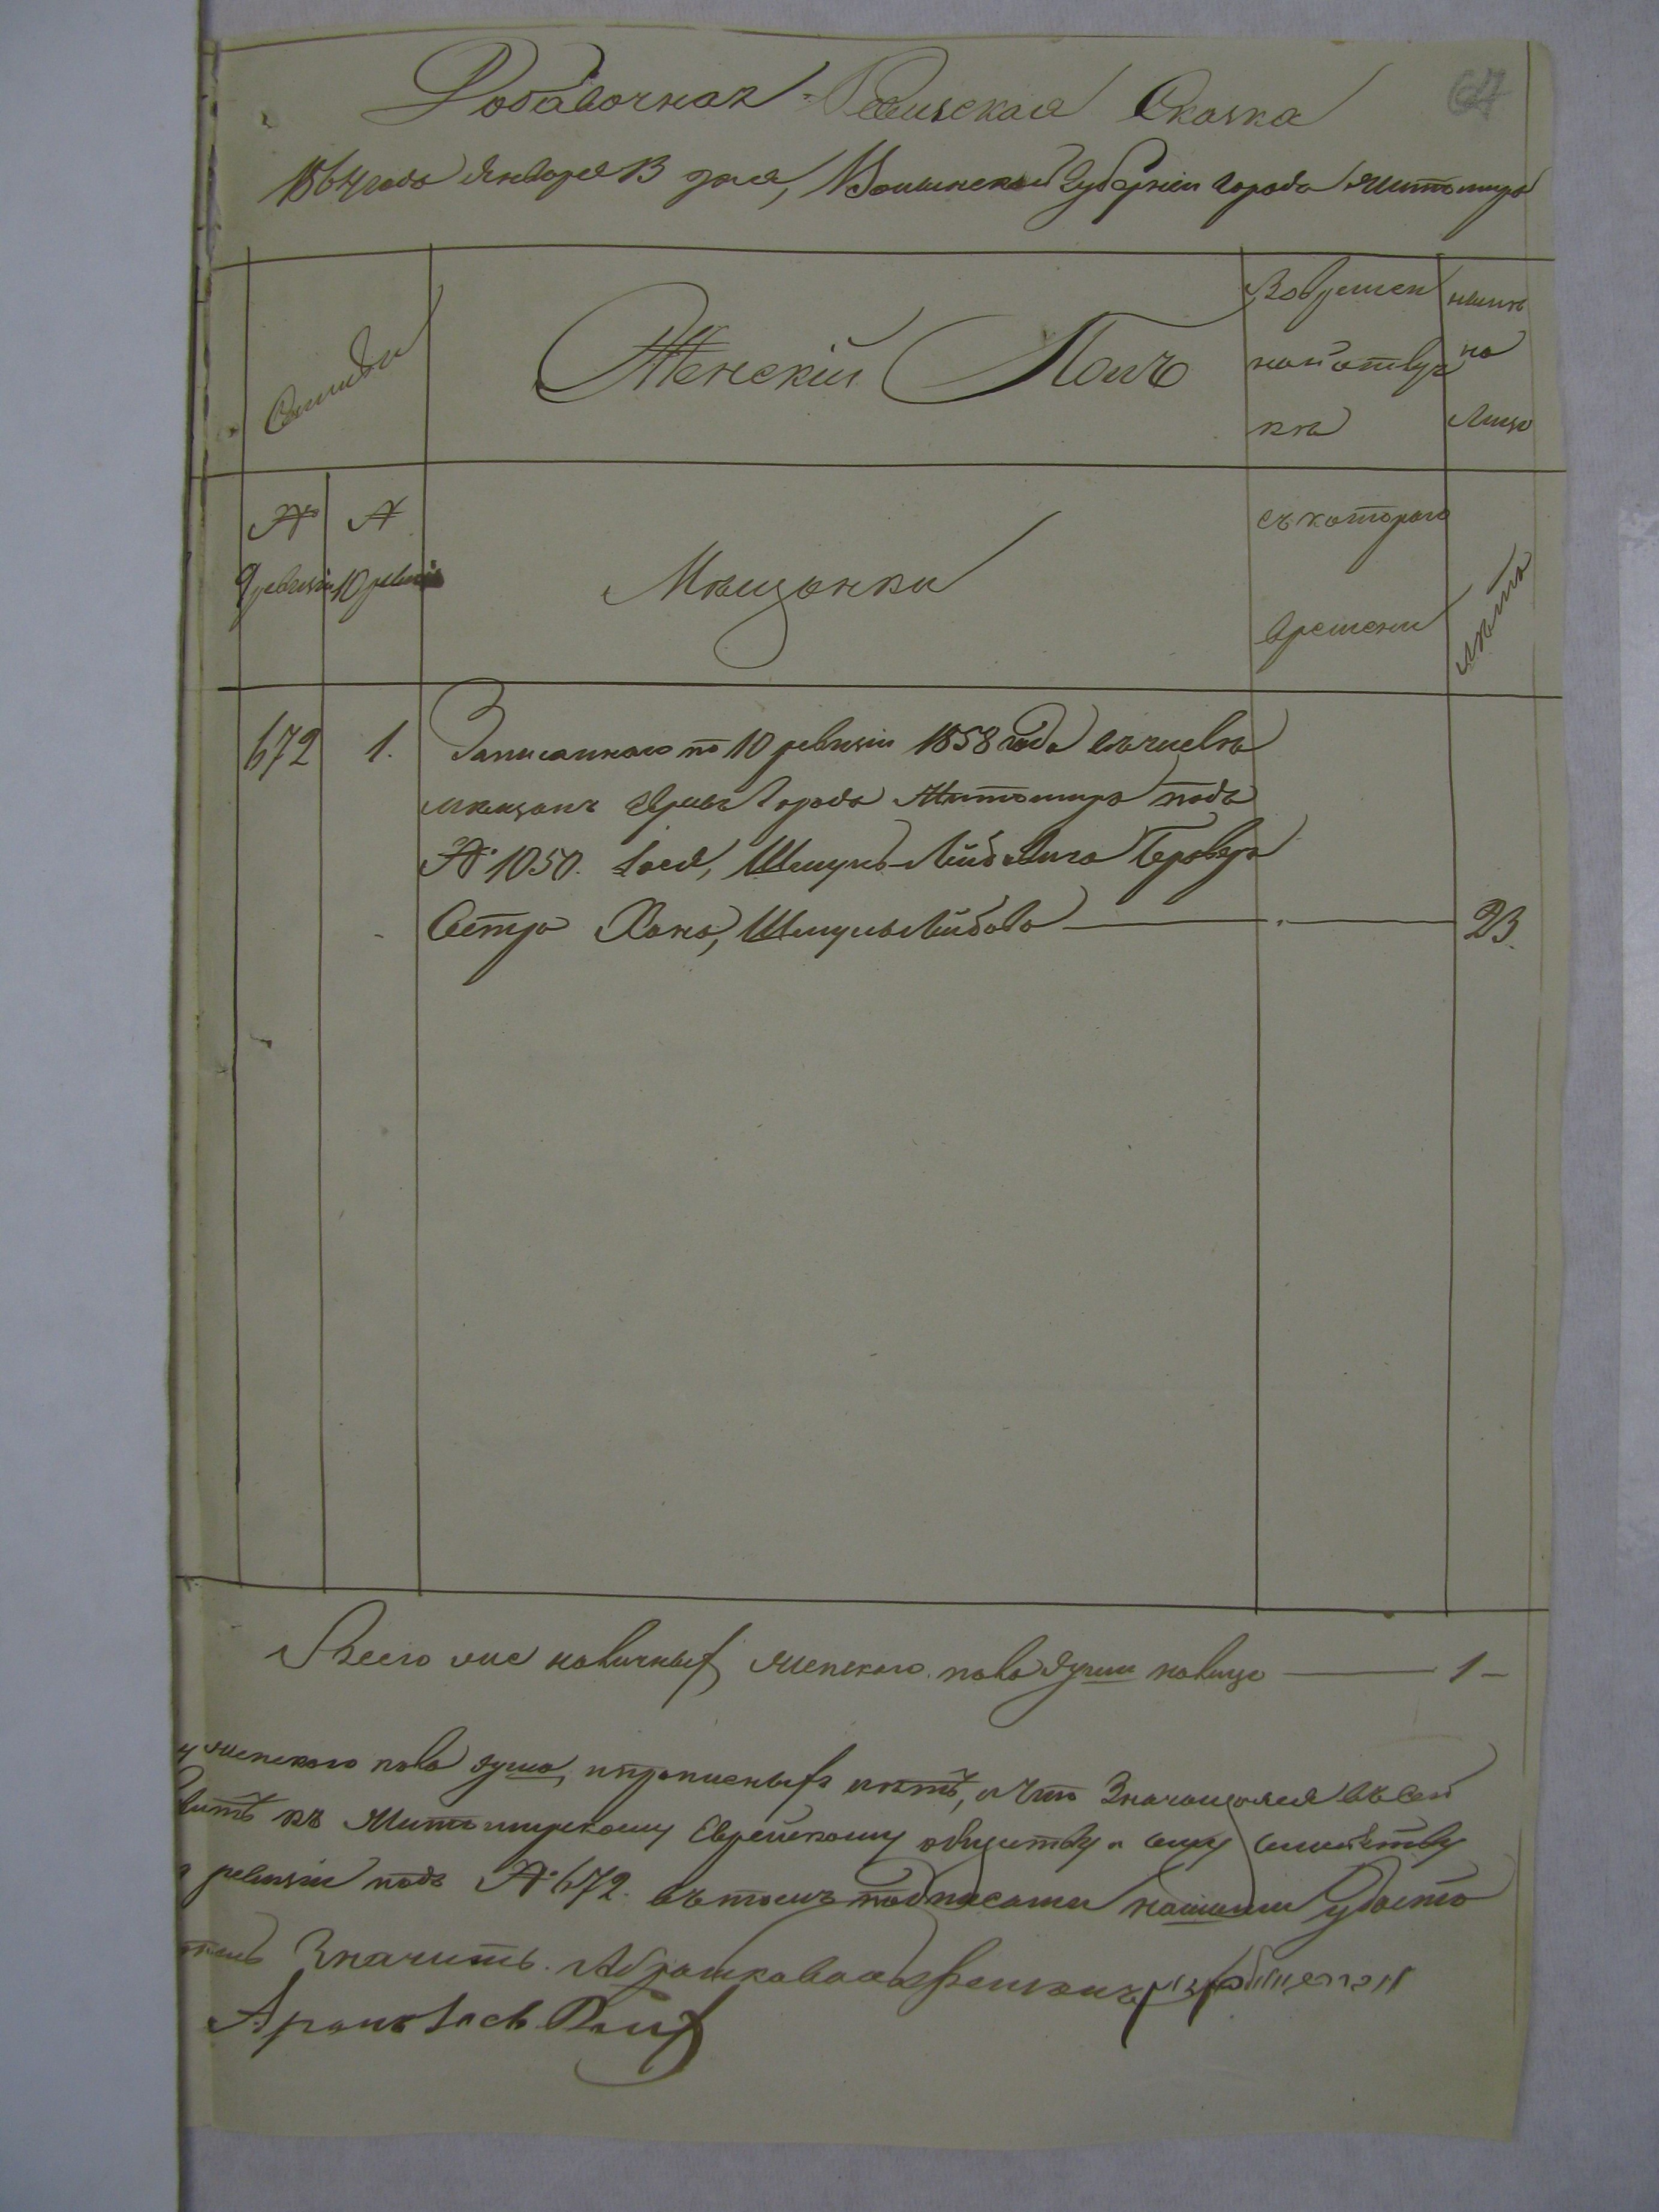 Добавочная Ревизская Сказка
67
1864 года Января 13 дня, Волынской Губернии города Житомира
Семьи
Женскій Полъ
Вовремен
ной отлуч
кѣ
налич
на
лицо
№
9 ревизіи
№
10 ревизіи
Мѣщанки
съ котораго
времени
лѣта
672 1. Записаннаго по 10 ревизіи 1858 года въ числѣ
мѣщанъ евреевъ города Житомира подъ
№ 1050. Іося, Шмуль-Лейбовича
Сестра Хана, Шмуль Лейбова 23.
Всего же наличныхъ женскаго пола душъ налицо 1
женскаго пола душа, и прописныхъ нѣтъ, и что значащаяся въ сей
къ Житомирскому Еврейскому обществу и семейству
ревизіи подъ № 672. въ томъ подписами нашими удосто
значитъ.
Аронъ Іось